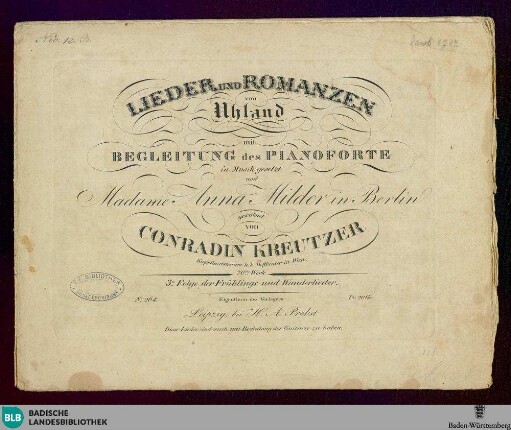 LIEDER UND ROMANZEN
von
Uhland
mit
BEGLEITUNG des PIANOFORTE
in Musik gesetzt
und
Madame Anna Milder in Berlin
gewidmet
VON
CONRADIN KREUTZER
Kapellmeister am k.k. Hoftheater in Wien.
70tes Werk
3te Folge der Frühlings und Wanderlieder.
No. 264.
Eigenthum des Verlegers
Pr.
Leipzig, bei H. A. Probst
Diese Lieder sind auch mit Begleitung der Guitarre zu haben.
BLB
BADISCHE
LANDESBIBLIOTHEK
Baden-Württemberg